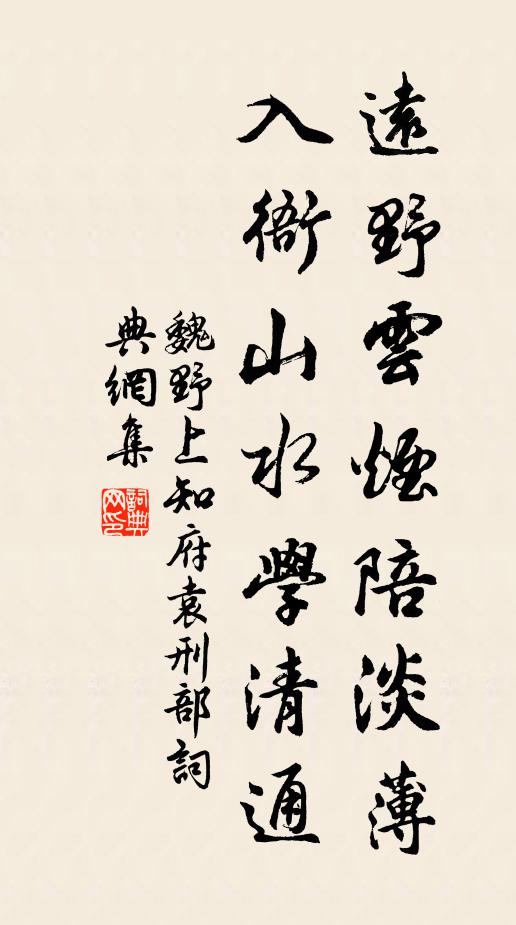 遠野雲煙陪淡薄
入衙山水學清通
魏野上知府袁刑部詞
典網集
詞典網印